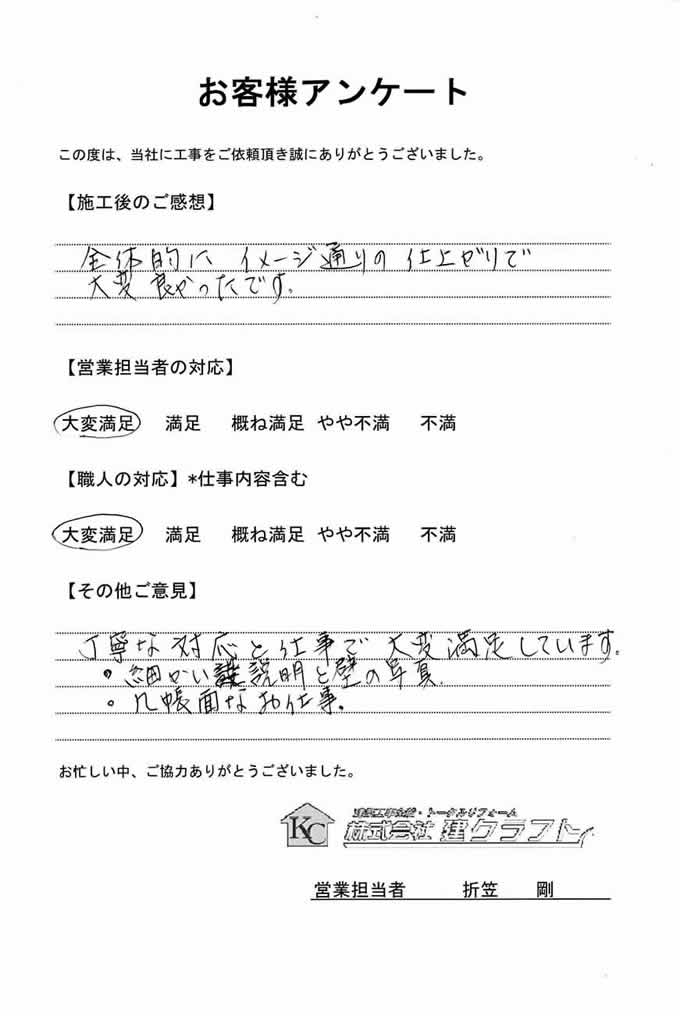 お客様アンケート
この度は、当社に工事をご依頼頂き誠にありがとうございました。
【施工後のご感想】
全体的に イメージ通りの 仕上がりで
大変 良かったです。
【営業担当者の対応】
大変満足 満足 概ね満足 やや不満 不満
【職人の対応】*仕事内容含む
大変満足 満足 概ね満足 やや不満 不満
【その他ご意見】
丁寧な 対応と 仕事で 大変満足しています。
・細かい 説明と壁の写真
・几帳面な お仕事。
お忙しい中、ご協力ありがとうございました。
KC
・トータルリフォーム
株式会社 建クラフト
営業担当者 折笠 剛